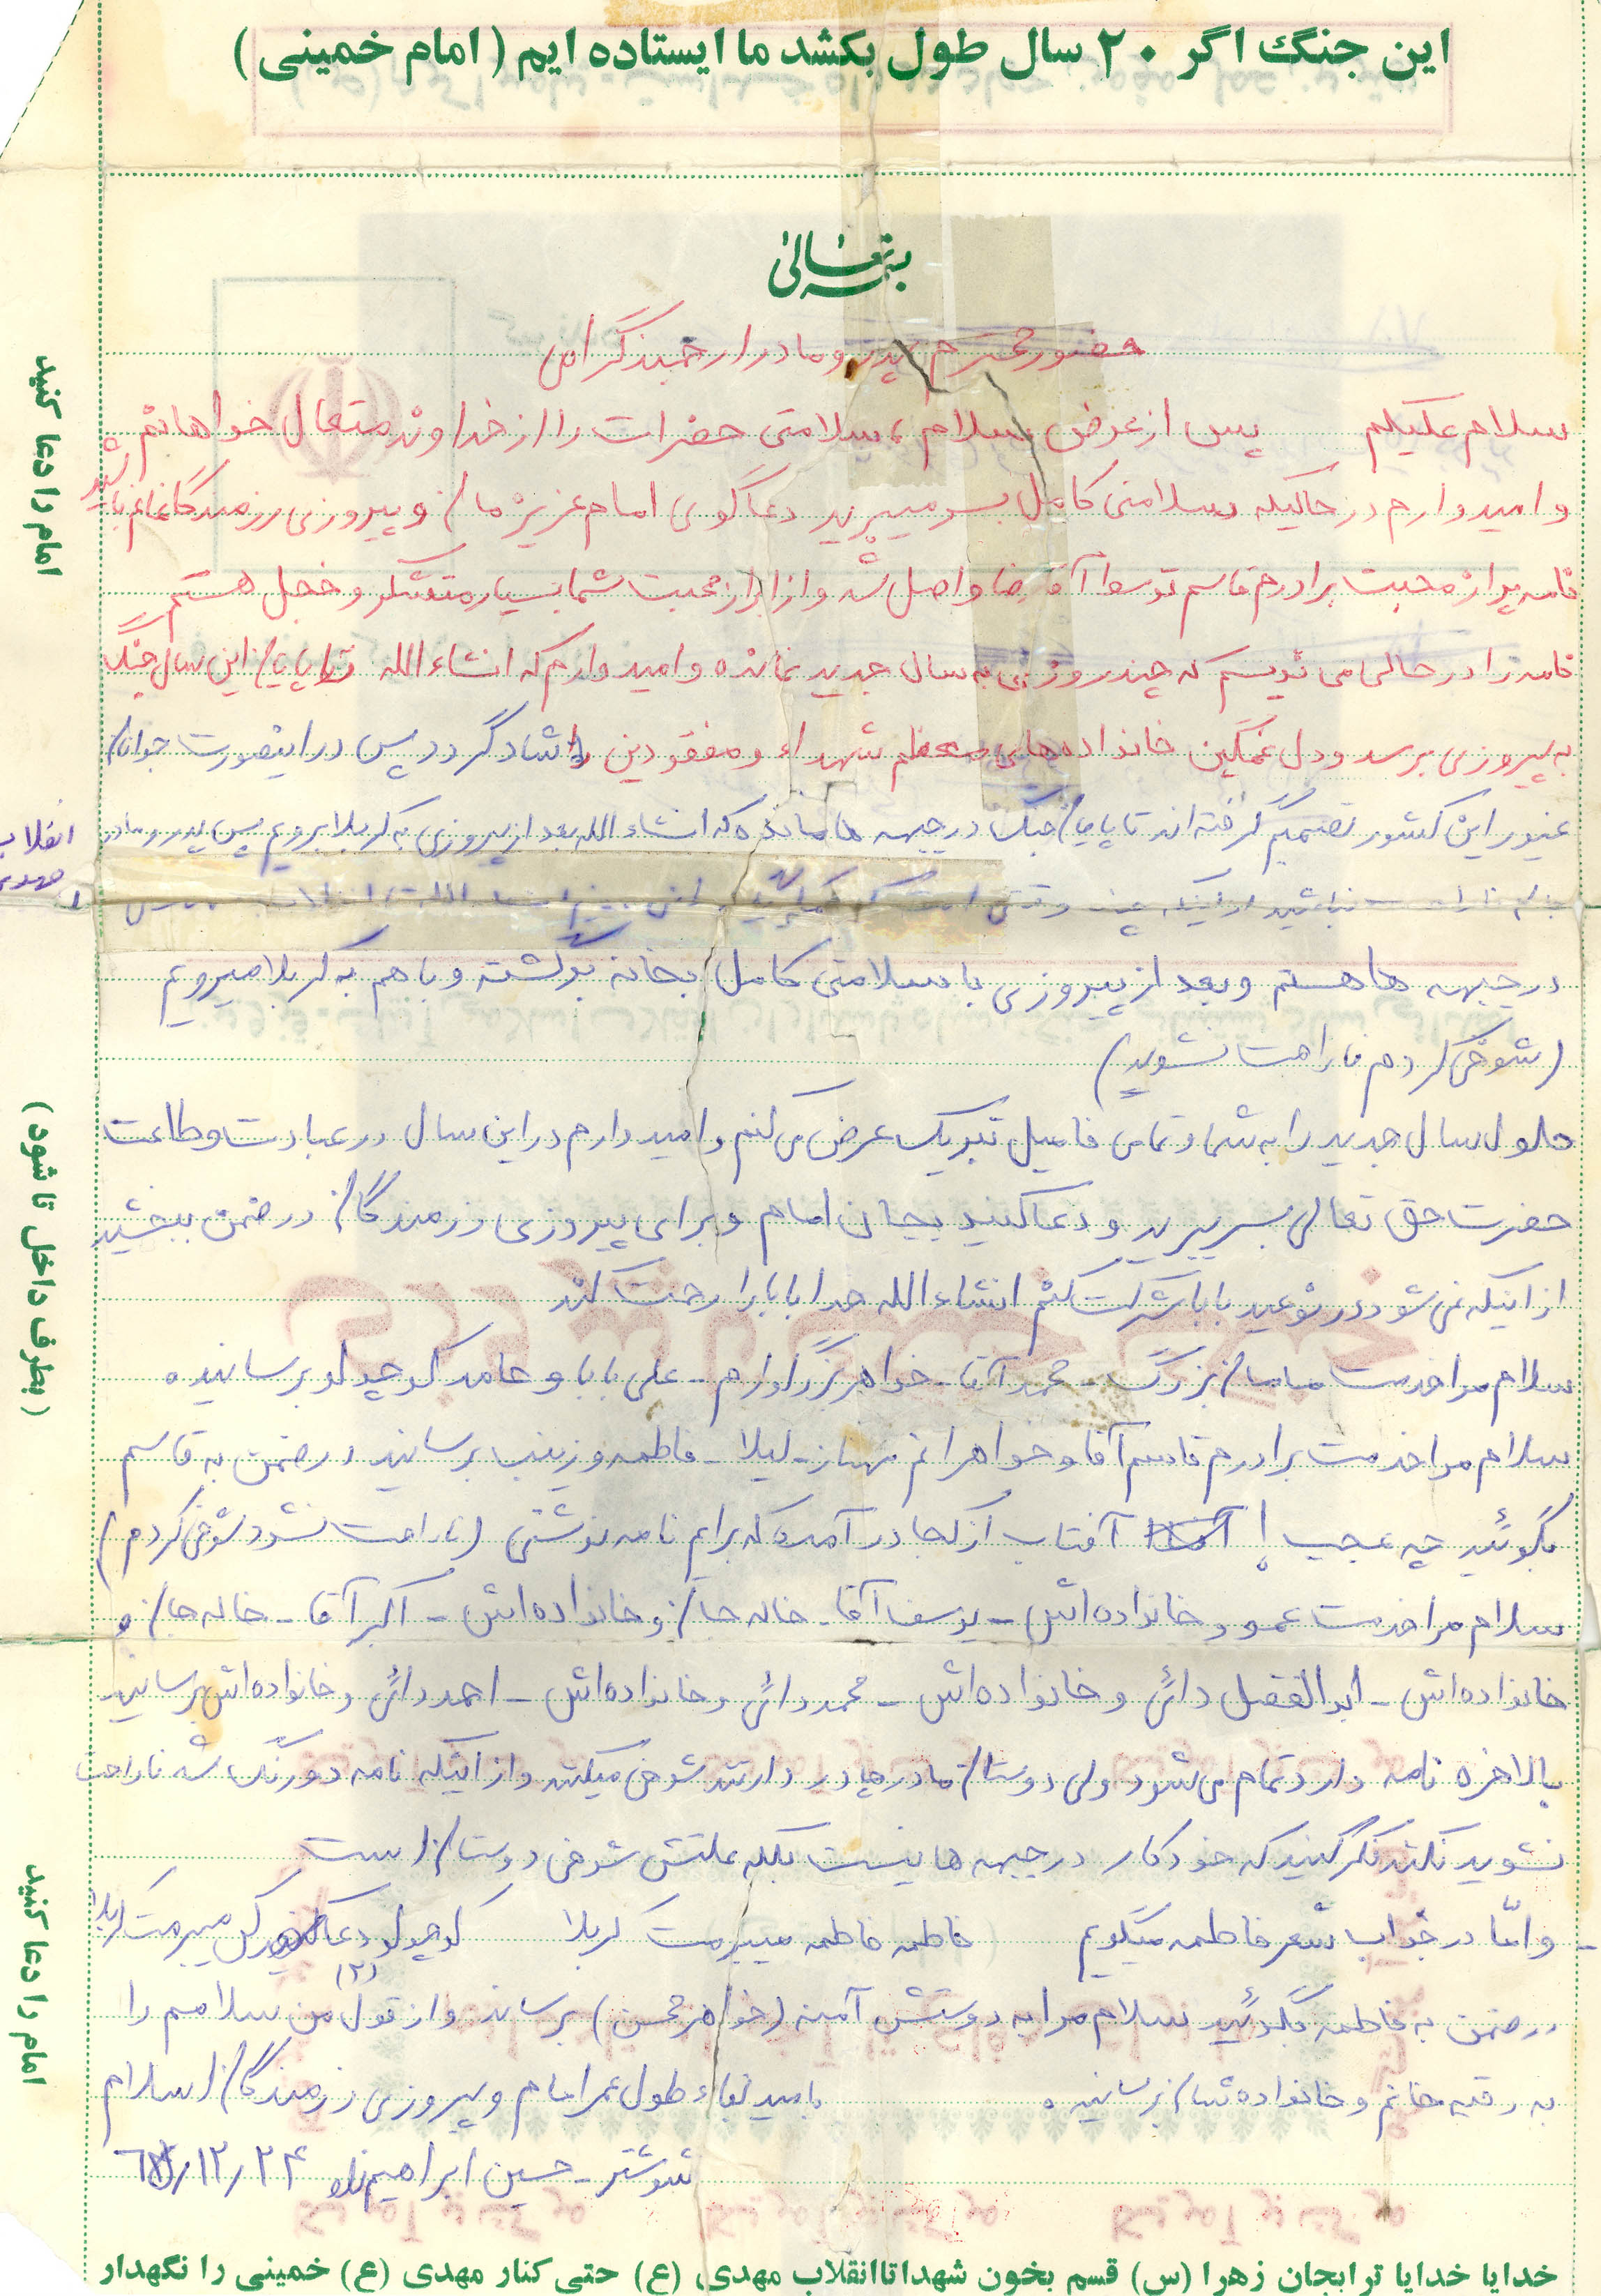 این جنگ اگر ۲۰ سال طول بکشد ما ایستاده ایم (امام خمینی)
بسمه تعالی
حضور محترم پدر و مادر ارجمند گرامی
سلام علیکم پس از عرض سلام، سلامتی حضرات را از خداوند متعال خواهانم
و امیدوارم در حالیکه سلامتی کامل بسر میبرید دعاگوی امام عزیز ما و پیروزی رزمندگانمان باشید
نامه پر از محبت برادرم قاسم توسط آقا رضا واصل شد و از ابراز محبت شما بسیار متشکر و خجل هستم
نامه را در حالی می نویسم که چند روزی به سال جدید نمانده و امیدوارم که انشاءالله تا پایان این سال جنگ
به پیروزی برسد و دل غمگین خانواده های معظم شهداء و مفقودین را شاد گردد پس در اینصورت جوانان
غیور این کشور تصمیم گرفته اند تا پایان جنگ در جبهه ها مانده که انشاءالله بعد از پیروزی به کربلا برویم پس پدر و مادر
ناراحت نباشید از اینکه چند وقتی است که انشاءالله تا انقلاب مهدی
در جبهه ها هستم و بعد از پیروزی با سلامتی کامل بخانه برگشته و با هم به کربلا میرویم
(شوخی کردم ناراحت نشوید)
حلول سال جدید را به شما و تمامی فامیل تبریک عرض می کنم و امیدوارم در این سال در عبادت و طاعت
حضرت حق تعالی بسر ببرید و دعا کنید بجان امام و برای پیروزی رزمندگان در ضمن ببخشید
از اینکه نمی شود در نوعید بابا شرکت کنم انشاءالله خدا بابا را رحمت کند
سلام مرا خدمت مامان بزرگ - محمد آقا - خواهر بزرگوارم - علی بابا و حامد کوچولو برسانید.
سلام مرا خدمت برادرم قاسم آقا و خواهرانم مهناز - لیلا - فاطمه و زینب برسانید در ضمن به قاسم
بگوئید چه عجب! آفتاب از کجا در آمده که برایم نامه نوشتی (ناراحت نشود شوخی کردم)
سلام مرا خدمت عمو و خانواده اش - یوسف آقا - خاله جان و خانواده اش - اکبر آقا - خاله جان و
خانواده اش - ابوالفضل دائی و خانواده اش - محمد دائی و خانواده اش - احمد دائی و خانواده اش برسانید
بالاخره نامه دارد تمام می شود ولی دوستان ما در چادر دارند شوخی میکنند و از اینکه نامه دو رنگ شد ناراحت
نشوید نکند فکر کنید که خودکار در جبهه ها نیست بلکه علتش شوخی دوستان است
- و امّا در جواب شعر فاطمه میگویم فاطمه فاطمه میبرمت کربلا کوچولو دعا کن میبرمت کربلا (۲)
در ضمن به فاطمه بگوئید سلام مرا به دوستش آمنه (خواهر محسن) برساند و از قول من سلامم را
به رقیه خانم و خانواده شان برسانید. بامید بقاء طول عمر امام و پیروزی رزمندگان اسلام
شوشتر - حسین ابراهیم زاده ۲۴/۱۲/
خدایا خدایا ترا بجان زهرا (س) قسم بخون شهدا تا انقلاب مهدی (ع) حتی کنار مهدی (ع) خمینی را نگهدار
امام را دعا کنید
(بطرف داخل تا شود)
امام را دعا کنید